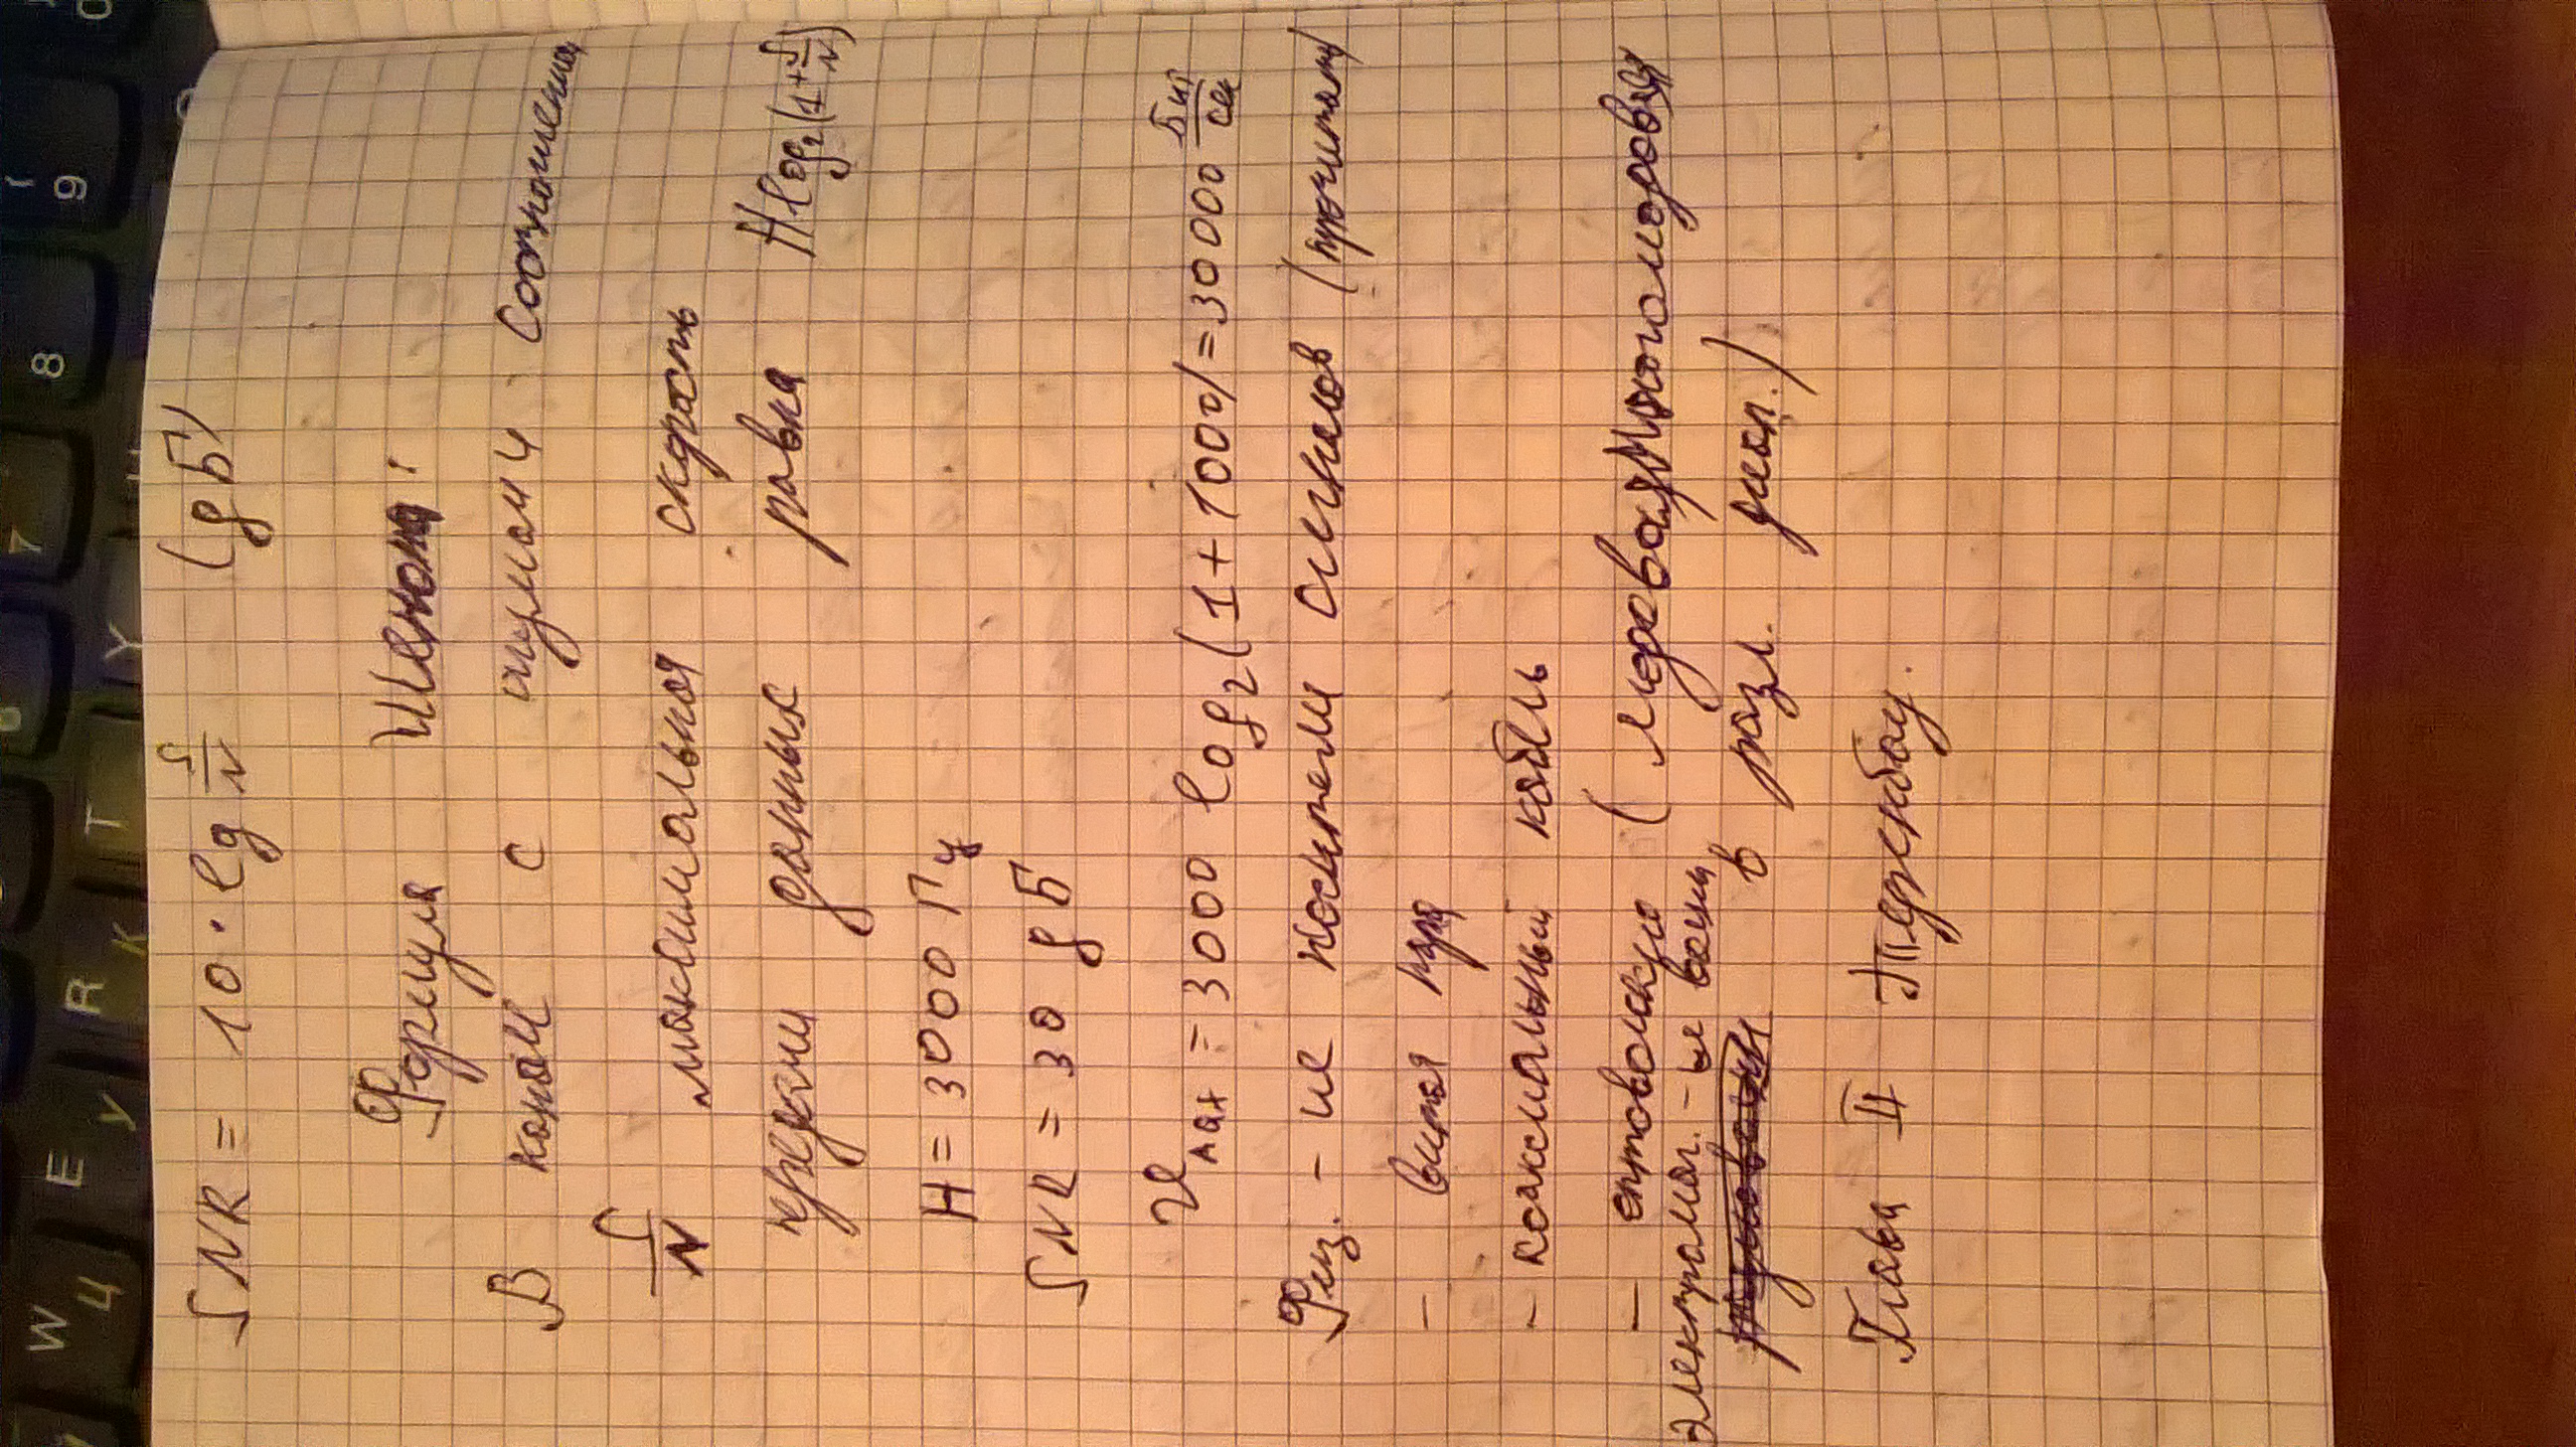 W E R T Y 7 8 9
Ц У К
SNR = 10 · lg S/N (дБ)
Формула Шенона:
В канале с шумом и соотношением
S/N максимальная скорость
передачи данных равна H log₂(1+S/N)
H = 3000 Гц
SNR = 30 дБ
V max = 3000 log₂(1+1000) = 30000 Бит/сек
Физ. - ие носители сигналов (прочитать)
- витая пара
- коаксиальный кабель
- оптоволокно (модовая, Многомодовая
электромаг. - ые волны
в разл. диап.)
Глава II Таненбау.